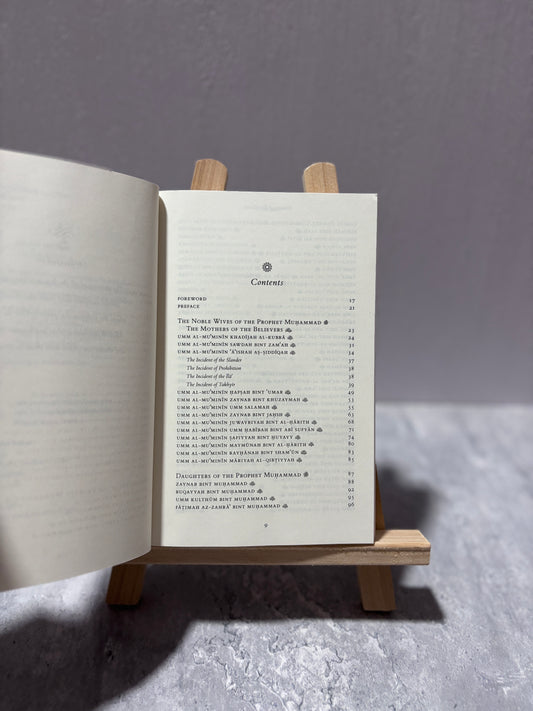 Contents
FOREWORD 17
PREFACE 21
THE NOBLE WIVES OF THE PROPHET MUḤAMMAD ﷺ
THE MOTHERS OF THE BELIEVERS 23
UMM AL-MU'MINĪN KHADĪJAH AL-KUBRĀ 24
UMM AL-MU'MINĪN SAWDAH BINT ZAM'AH 31
UMM AL-MU'MINĪN 'Ā'ISHAH AṢ-ṢIDDĪQAH 34
The Incident of the Slander 37
The Incident of Prohibition 38
The Incident of the Īlā' 38
The Incident of Takhyīr 39
UMM AL-MU'MINĪN ḤAFṢAH BINT 'UMAR 49
UMM AL-MU'MINĪN ZAYNAB BINT KHUZAYMAH 53
UMM AL-MU'MINĪN UMM SALAMAH 55
UMM AL-MU'MINĪN ZAYNAB BINT JAḤSH 63
UMM AL-MU'MINĪN JUWAYRIYAH BINT AL-ḤĀRITH 68
UMM AL-MU'MINĪN UMM ḤABĪBAH BINT ABĪ SUFYĀN 71
UMM AL-MU'MINĪN ṢAFIYYAH BINT ḤUYAYY 74
UMM AL-MU'MINĪN MAYMŪNAH BINT AL-ḤĀRITH 80
UMM AL-MU'MINĪN RAYḤĀNAH BINT SHAM'ŪN 83
UMM AL-MU'MINĪN MĀRIYAH AL-QIBṬIYYAH 85
DAUGHTERS OF THE PROPHET MUḤAMMAD ﷺ 87
ZAYNAB BINT MUḤAMMAD 88
RUQAYYAH BINT MUḤAMMAD 92
UMM KULTHŪM BINT MUḤAMMAD 95
FĀṬIMAH AZ-ZAHRĀ' BINT MUḤAMMAD 96
9